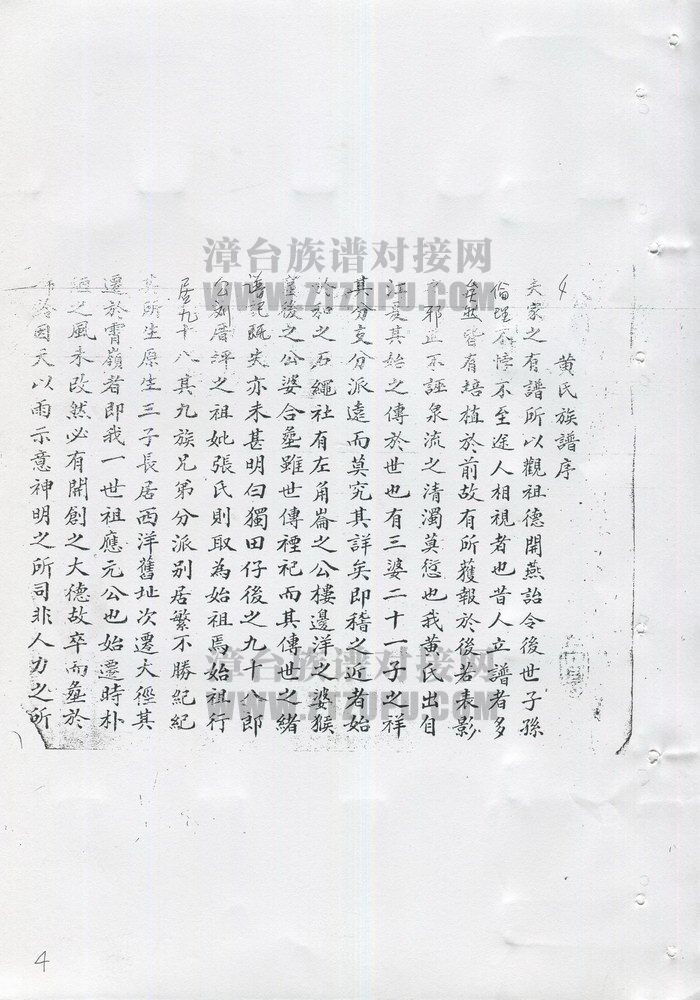 4
黄氏族譜序
夫家之有譜所以觀祖德開燕詒令後世子孫
倫理不悖不至途人相視者也昔人立譜者多
矣然皆有培植於前故有所獲報於後若表影
邪正不誣泉流之清濁莫愆也我黄氏出自
江夏其始之傳於世也有三婆二十一子之祥
其分支分派遠而莫究其詳矣即稽之近者始
於和之石繩社有左角崙之公樓邊洋之婆猴
後之公婆合塟雖世傳禋祀而其傳世之緒
譜記既失亦未甚明白獨田仔後之九十八郎
公剏厝坪之祖妣張氏則取為始祖焉始祖行
居九十八其九族兄弟分派别居繁不勝紀紀
其所生原生三子長居西洋舊址次遷大徑其
遷於霄嶺者即我一世祖應元公也始遷時朴
陋之風未改然必有開創之大德故卒而塟於
因天以雨示意神明之所司非人力之所
漳台族谱对接网
WWW.ZTZUPU.COM
漳台族谱对接网
WWW.ZTZUPU.COM
4